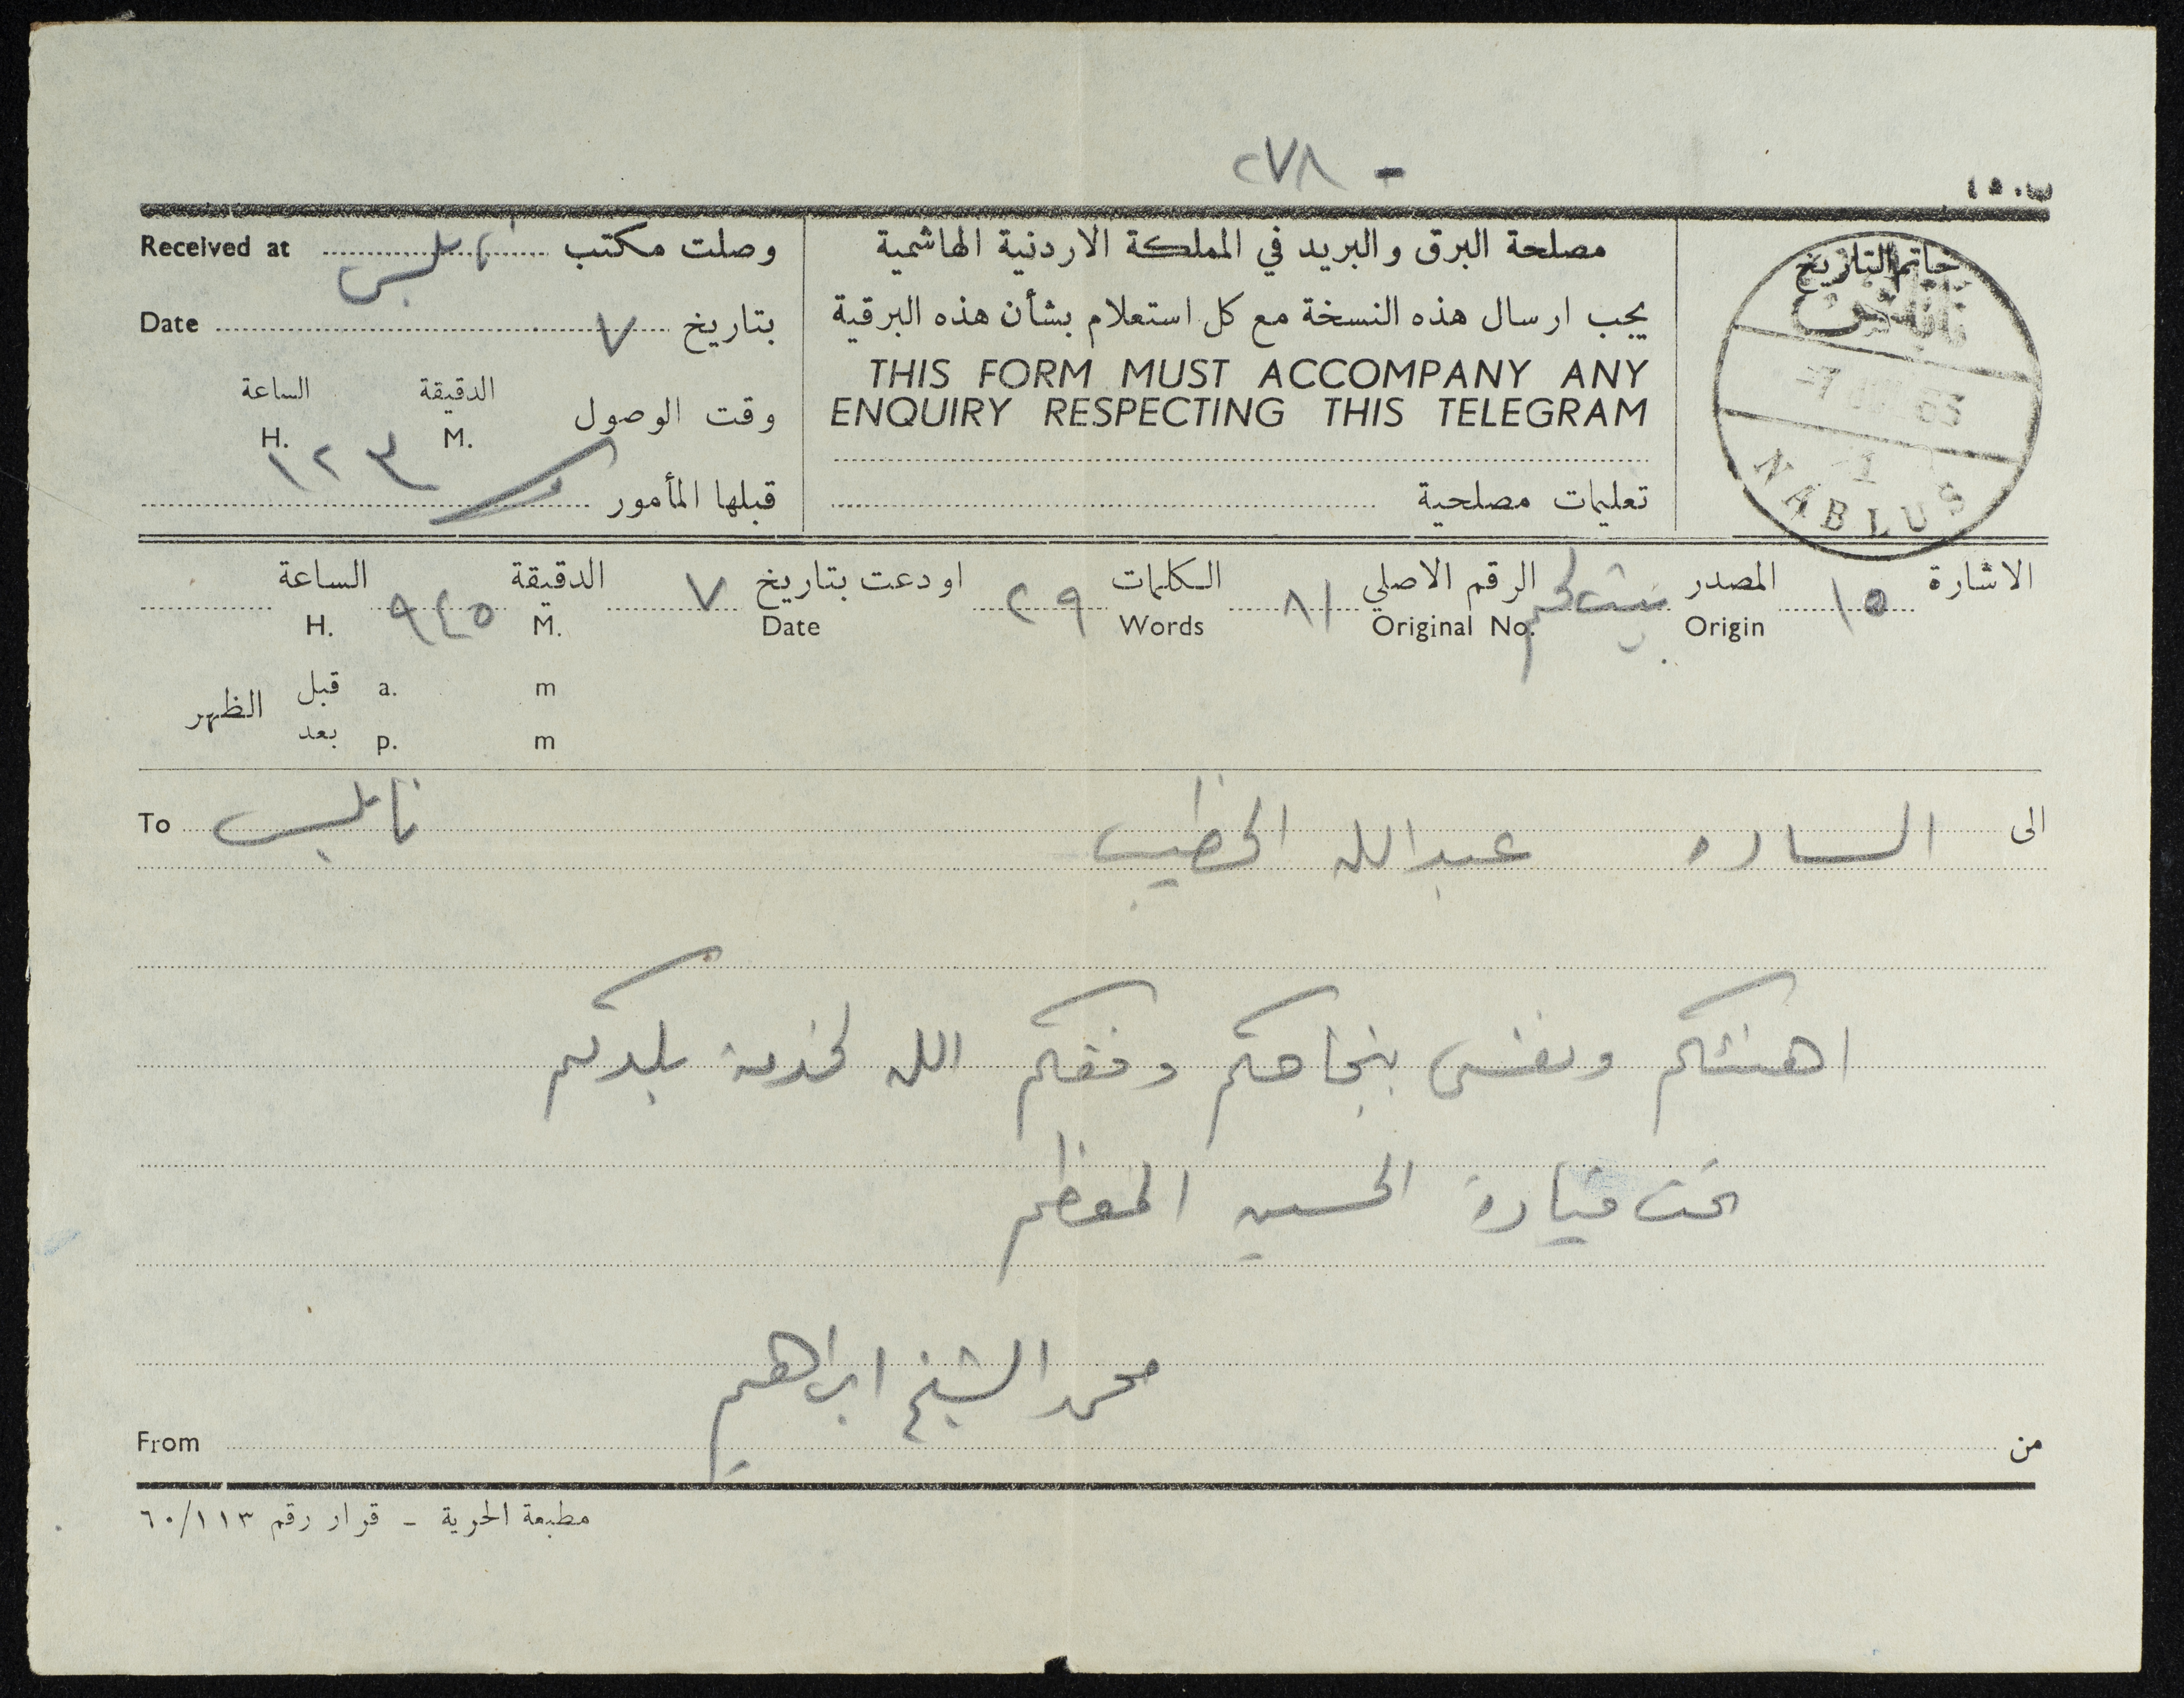 ٢٧٨ -
ب ٤٥٠
خاتم التاريخ
نابلس
63
NABLUS
مصلحة البرق والبريد في المملكة الاردنية الهاشمية
يجب ارسال هذه النسخة مع كل استعلام بشأن هذه البرقية
THIS FORM MUST ACCOMPANY ANY
ENQUIRY RESPECTING THIS TELEGRAM
تعليمات مصلحية
وصلت مكتب نابلس Received at
بتاريخ ٧ Date
وقت الوصول الدقيقة M. الساعة H.
١٢٣
قبلها المأمور
الاشارة ١٥ المصدر بيت لحم الرقم الاصلي ٨١ الكلمات ٢٩ اودعت بتاريخ ٧ الدقيقة ٩٤٥ الساعة
Origin Original No. Words Date M. H.
قبل a. m
الظهر
بعد p. m
الى الساده عبدالله الخطيب نابلس To
اهنئكم ونفسي بنجاحكم وفقكم الله لخدمة بلدكم
تحت قيادة الحسين المعظم
محمد الشيخ ابراهيم
من From
مطبعة الحرية - قرار رقم ٦٠/١١٣